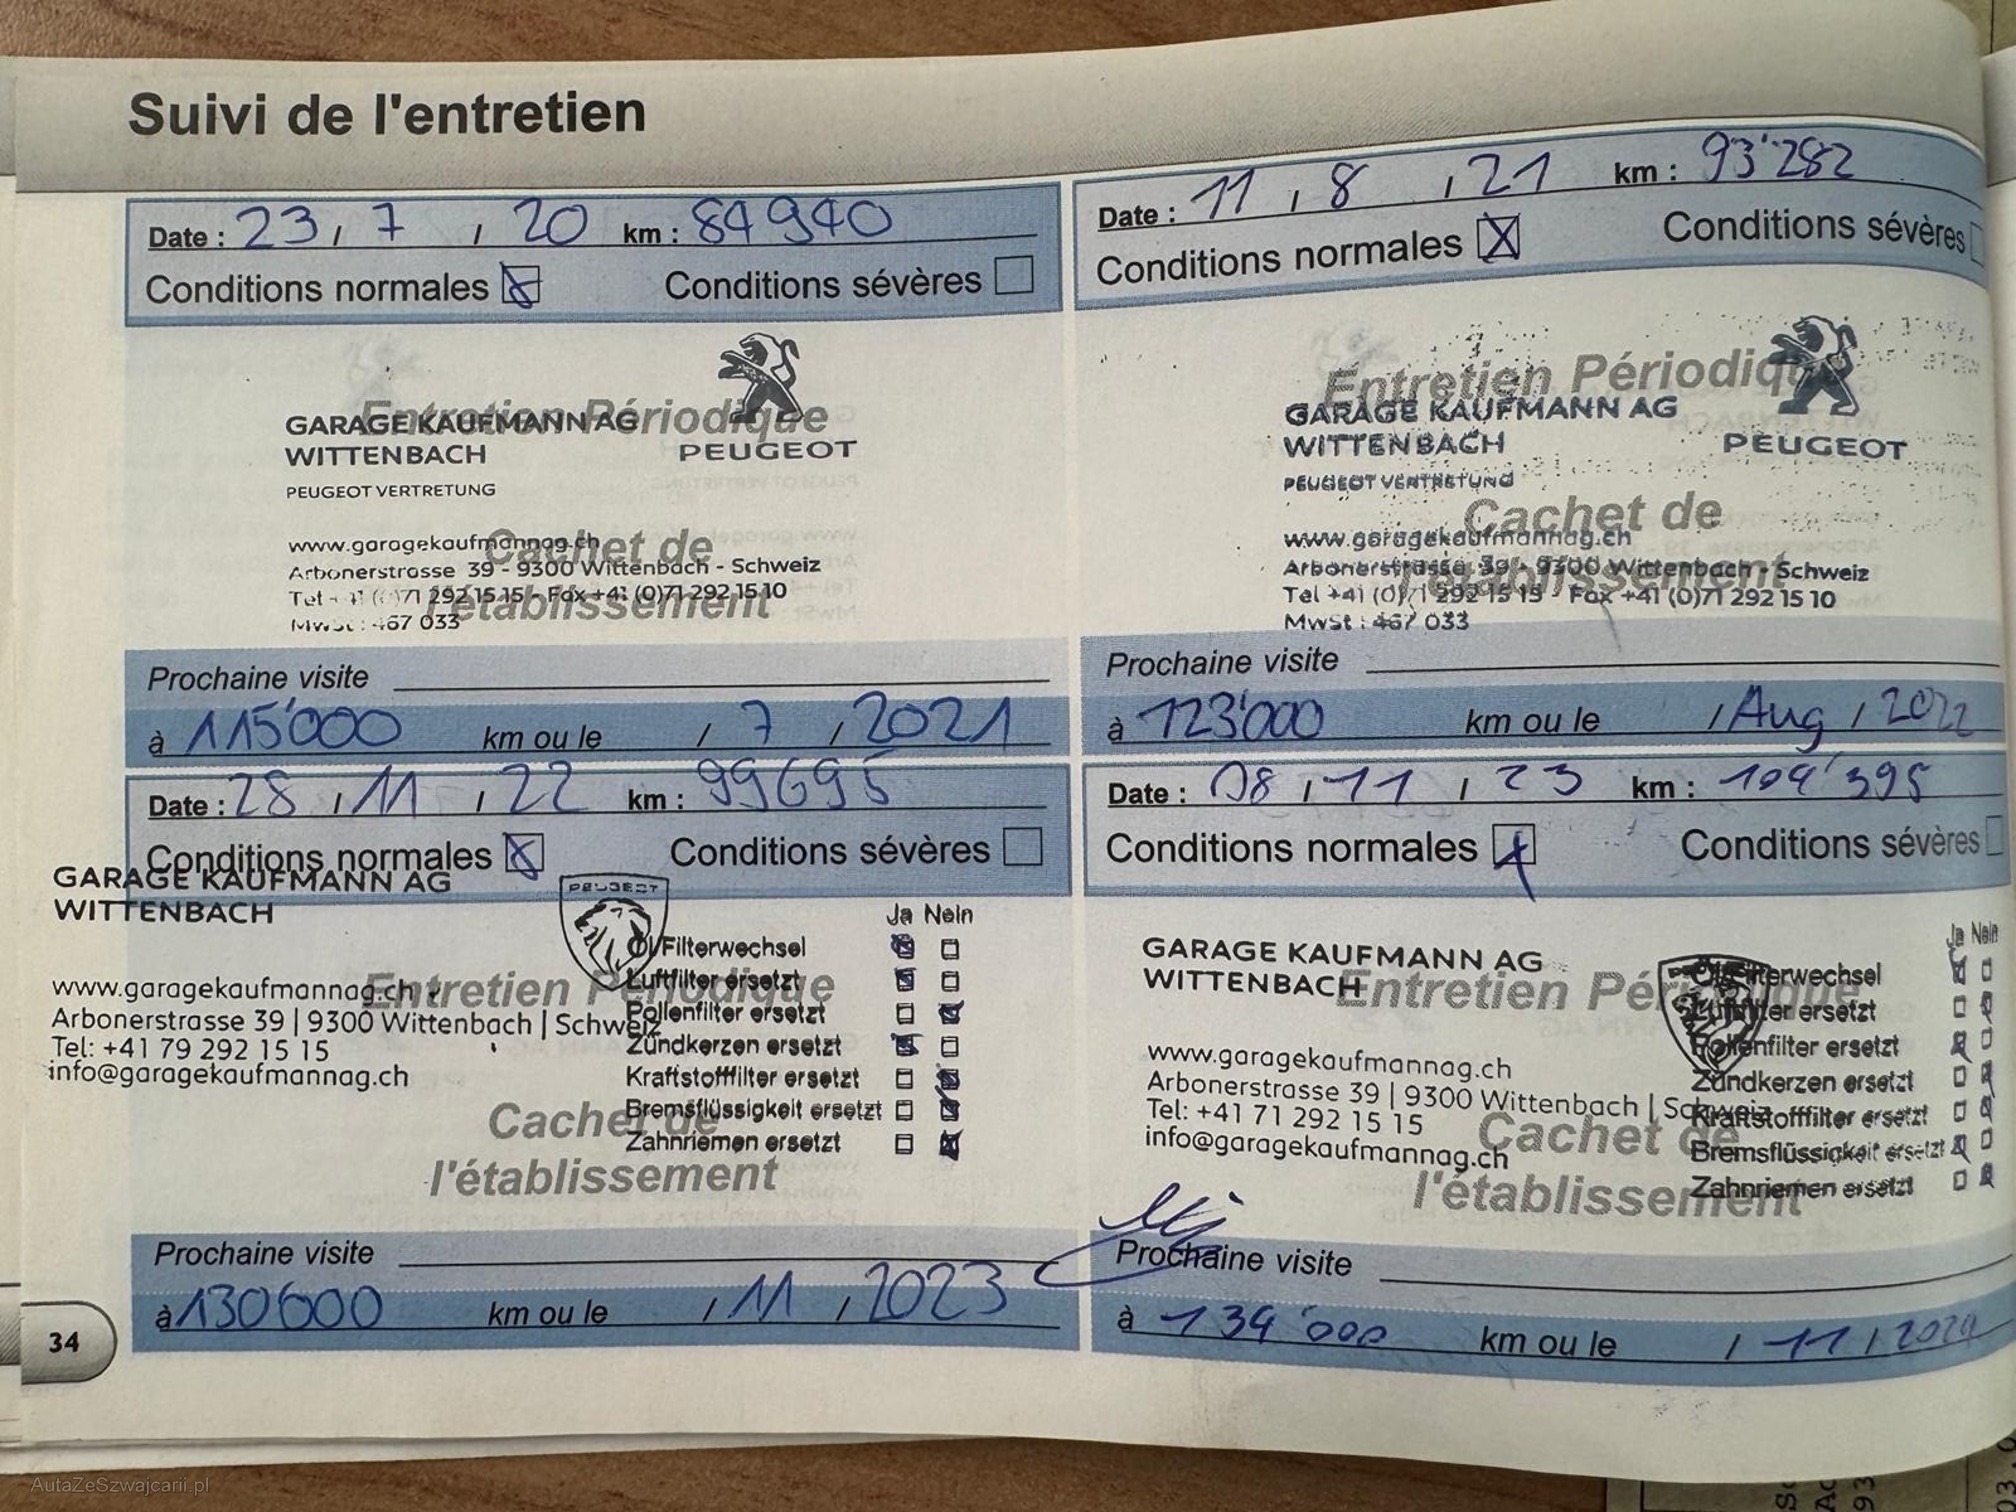 Suivi de l'entretien
Date : 23 / 7 / 20 km : 84940
Conditions normales Conditions sévères
Entretien Périodique
GARAGE KAUFMANN AG
WITTENBACH
PEUGEOT
PEUGEOT VERTRETUNG
Cachet de
l'établissement
www.garagekaufmannag.ch
Arbonerstrasse 39 - 9300 Wittenbach - Schweiz
Tel +41 (0)71 292 15 15 - Fax +41 (0)71 292 15 10
MwSt : 467 033
Prochaine visite
à 115'000 km ou le / 7 / 2021
Date : 11 / 8 / 21 km : 93'282
Conditions normales Conditions sévères
Entretien Périodique
GARAGE KAUFMANN AG
WITTENBACH
PEUGEOT
PEUGEOT VERTRETUNG
Cachet de
l'établissement
www.garagekaufmannag.ch
Arbonerstrasse 39 - 9300 Wittenbach - Schweiz
Tel +41 (0)71 292 15 15 - Fax +41 (0)71 292 15 10
MwSt : 467 033
Prochaine visite
à 123'000 km ou le / Aug / 2022
Date : 28 / 11 / 22 km : 99695
Conditions normales Conditions sévères
GARAGE KAUFMANN AG
WITTENBACH
PEUGEOT
Ja Nein
Öl/Filterwechsel
Luftfilter ersetzt
Pollenfilter ersetzt
Zündkerzen ersetzt
Kraftstofffilter ersetzt
Bremsflüssigkeit ersetzt
Zahnriemen ersetzt
Entretien Périodique
www.garagekaufmannag.ch
Arbonerstrasse 39 | 9300 Wittenbach | Schweiz
Tel: +41 79 292 15 15
info@garagekaufmannag.ch
Cachet de
l'établissement
Prochaine visite
à 130600 km ou le / 11 / 2023
Date : 08 / 11 / 23 km : 104'395
Conditions normales Conditions sévères
GARAGE KAUFMANN AG
WITTENBACH
Ja Nein
Öl/Filterwechsel
Luftfilter ersetzt
Pollenfilter ersetzt
Zündkerzen ersetzt
Kraftstofffilter ersetzt
Bremsflüssigkeit ersetzt
Zahnriemen ersetzt
Entretien Périodique
www.garagekaufmannag.ch
Arbonerstrasse 39 | 9300 Wittenbach | Schweiz
Tel: +41 71 292 15 15
info@garagekaufmannag.ch
Cachet de
l'établissement
Prochaine visite
à 134'000 km ou le / 11 / 2024
34
AutaZeSzwajcarii.pl